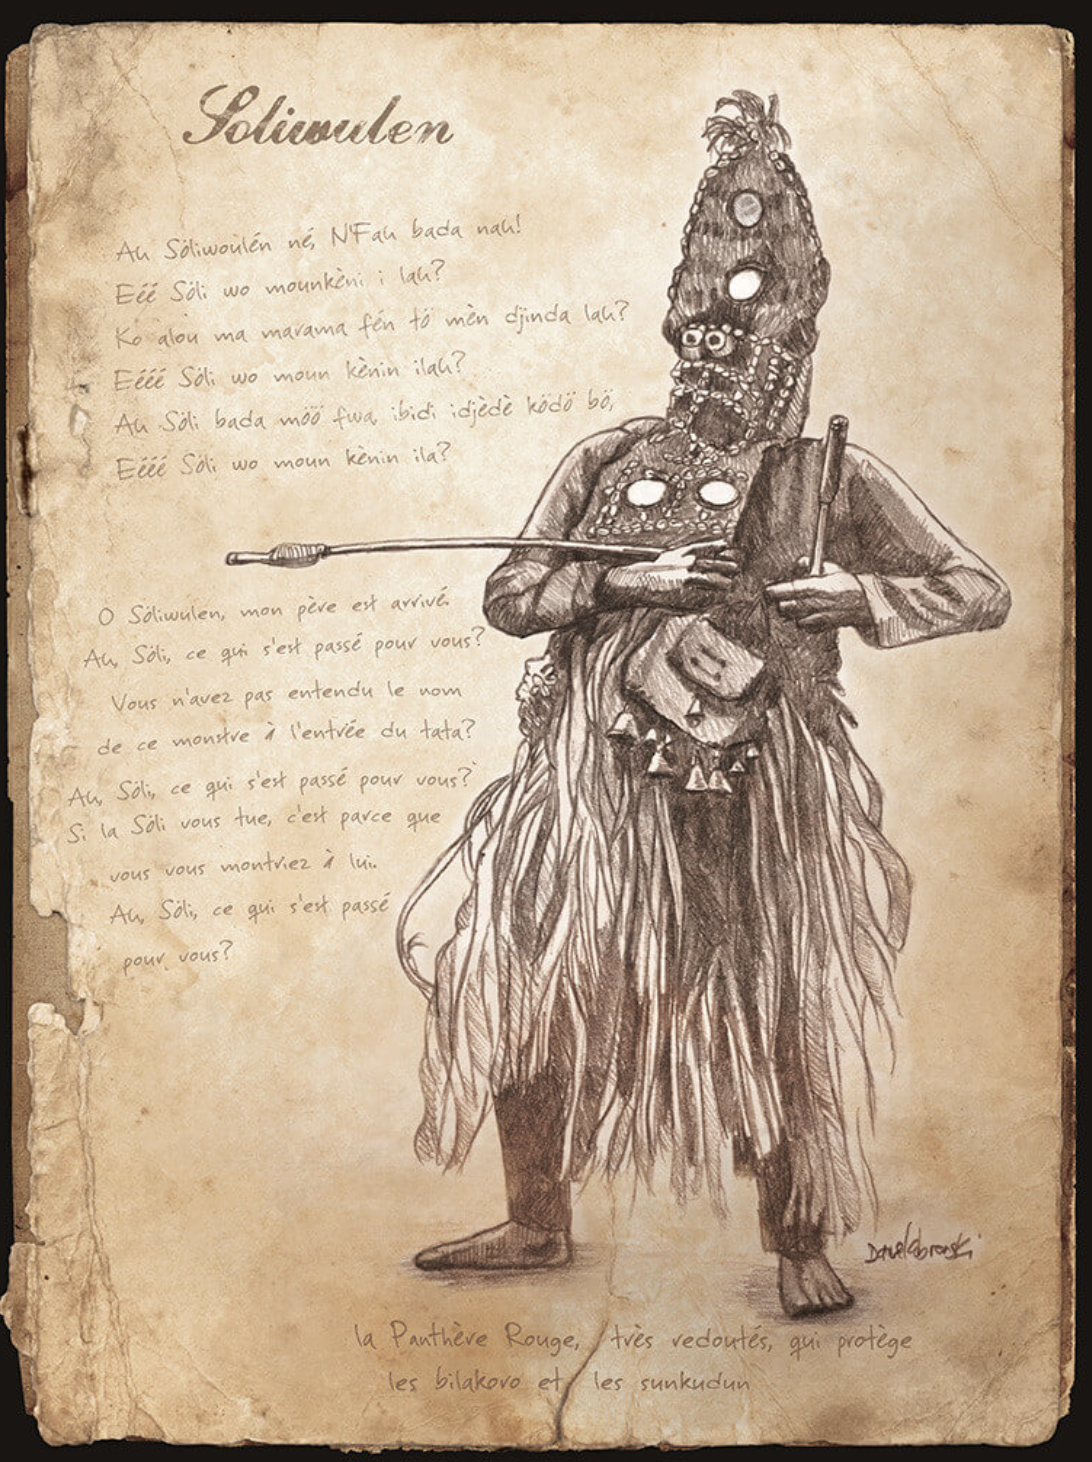 Soliwulen
Ah Sóliwoulén né, N'Fah bada nah!
Eéé Sóli wo mounkèni i lah?
Ko alou ma marama fén tö mèn djinda lah?
Eééé Sóli wo moun kènin ilah?
Ah Sóli bada möö fwa, ibidi idjèdè ködö bö,
Eééé Sóli wo moun kènin ila?
O Sóliwulen, mon père est arrivé.
Ah, Sóli, ce qui s'est passé pour vous?
Vous n'avez pas entendu le nom
de ce monstre à l'entrée du tata?
Ah, Sóli, ce qui s'est passé pour vous?
Si la Sóli vous tue, c'est parce que
vous vous montriez à lui.
Ah, Sóli, ce qui s'est passé
pour vous?
la Panthère Rouge, très redoutés, qui protège
les bilakoro et les sunkudun